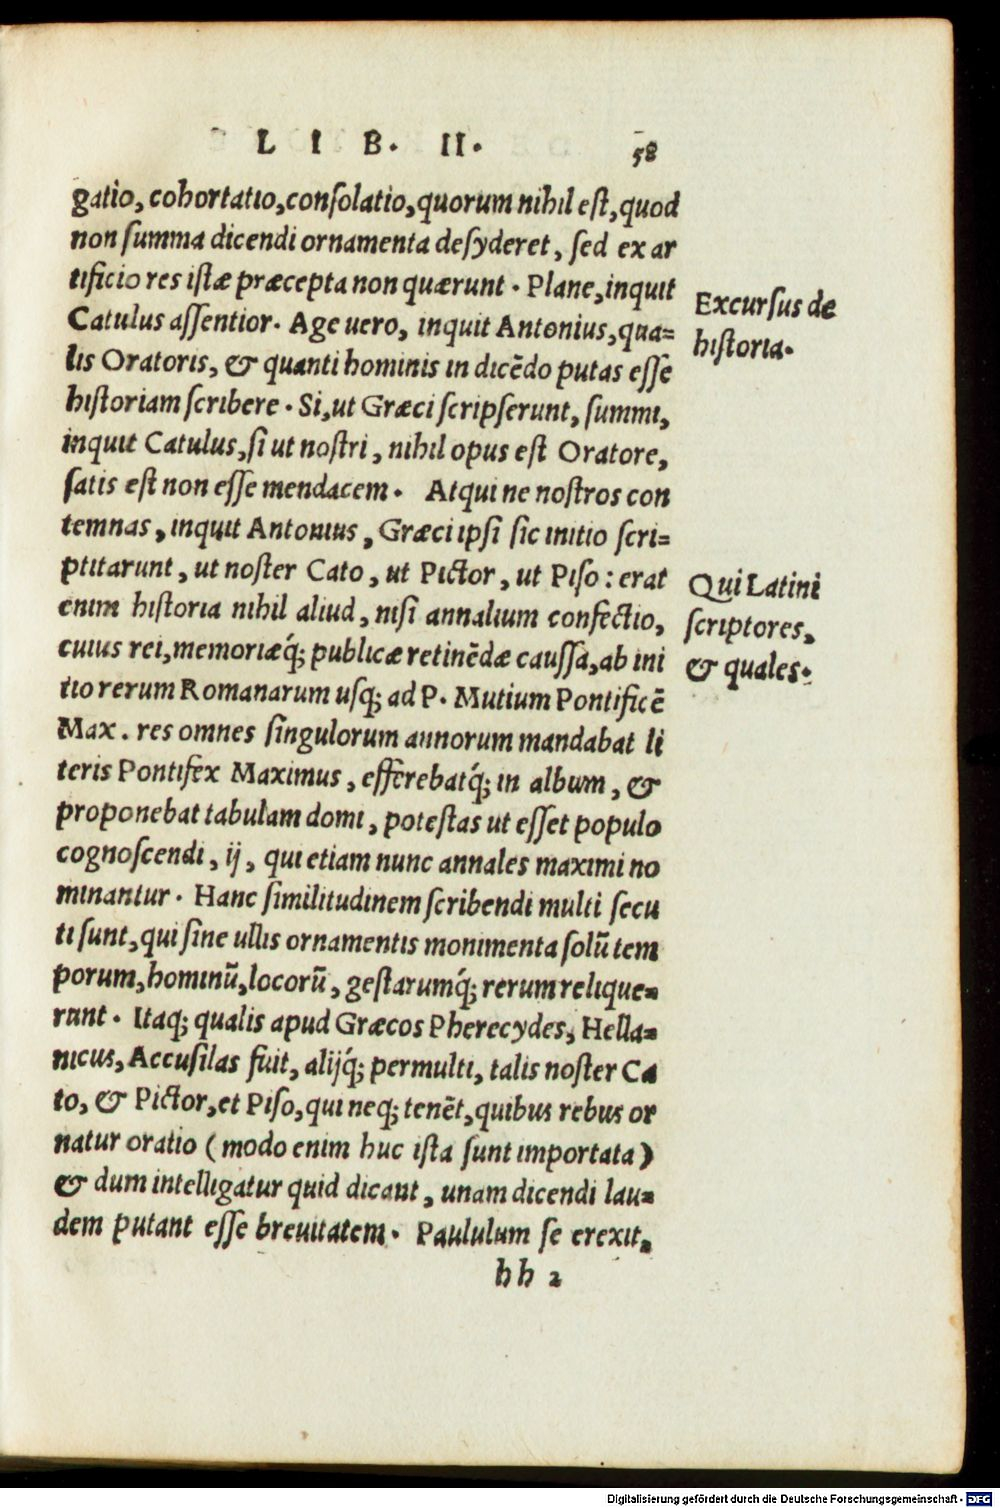 L I B. II. 58
gatio, cohortatio, conſolatio, quorum nihil eſt, quod
non ſumma dicendi ornamenta deſyderet, ſed ex ar
tificio res iſtæ præcepta non quærunt. Plane, inquit
Catulus aſſentior. Age uero, inquit Antonius, qua=
lis Oratoris, & quanti hominis in dicẽdo putas eſſe
hiſtoriam ſcribere. Si, ut Græci ſcripſerunt, ſummi,
inquit Catulus, ſi ut noſtri, nihil opus eſt Oratore,
ſatis eſt non eſſe mendacem. Atqui ne noſtros con
temnas, inquit Antonius, Græci ipſi ſic initio ſcri=
ptitarunt, ut noſter Cato, ut Pictor, ut Piſo: erat
enim hiſtoria nihil aliud, niſi annalium confectio,
cuius rei, memoriæq́; publicæ retinẽdæ cauſſa, ab ini
tio rerum Romanarum uſq; ad P. Mutium Pontificẽ
Max. res omnes ſingulorum annorum mandabat li
teris Pontifex Maximus, efferebatq́; in album, &
proponebat tabulam domi, poteſtas ut eſſet populo
cognoſcendi, ij, qui etiam nunc annales maximi no
minantur. Hanc ſimilitudinem ſcribendi multi ſecu
ti ſunt, qui ſine ullis ornamentis monimenta ſolũ tem
porum, hominũ, locorũ, geſtarumq́; rerum relique=
runt. Itaq; qualis apud Græcos Pherecydes, Hella=
nicus, Accuſilas fuit, alijq́; permulti, talis noſter Ca
to, & Pictor, et Piſo, qui neq; tenẽt, quibus rebus or
natur oratio (modo enim huc iſta ſunt importata)
& dum intelligatur quid dicant, unam dicendi lau=
dem putant eſſe breuitatem. Paululum ſe erexit,
hh 2
Excurſus de
hiſtoria.
Qui Latini
ſcriptores,
& quales.
Digitalisierung gefördert durch die Deutsche Forschungsgemeinschaft - DFG